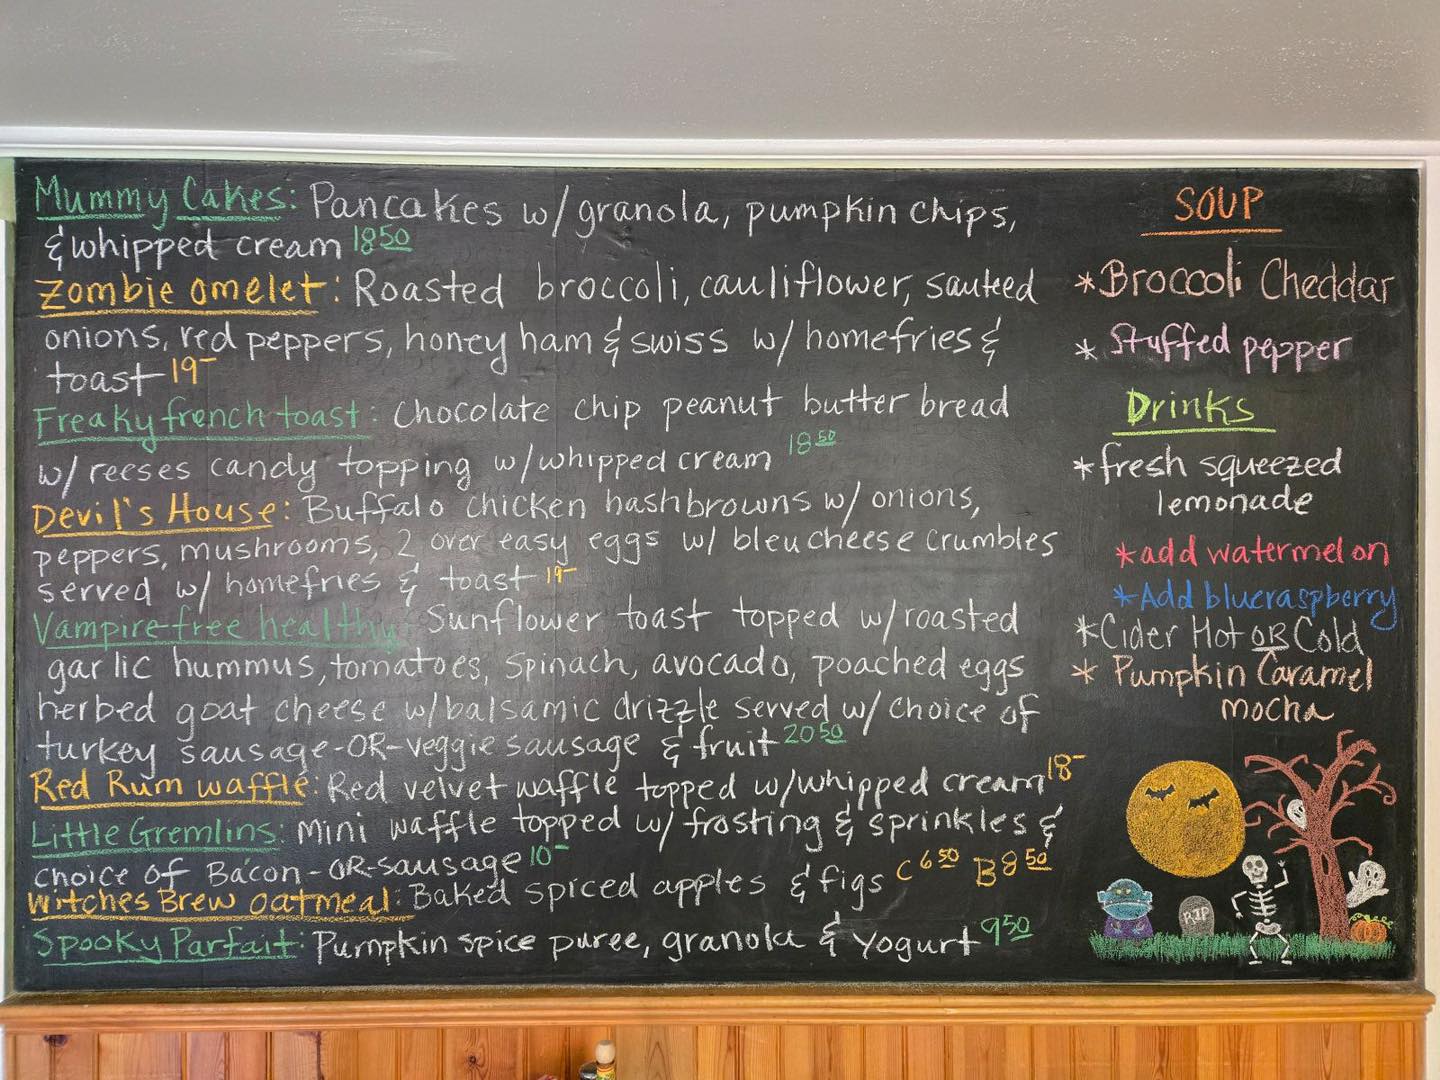 Mummy Cakes: Pancakes w/ granola, pumpkin chips,
& whipped cream 18 50
Zombie omelet: Roasted broccoli, cauliflower, sauteed
onions, red peppers, honey ham & swiss w/ homefries &
toast 19-
Freaky french toast: Chocolate chip peanut butter bread
w/ reeses candy topping w/ whipped cream 18 50
Devil's House: Buffalo chicken hashbrowns w/ onions,
peppers, mushrooms, 2 over easy eggs w/ bleu cheese crumbles
served w/ homefries & toast 19-
Vampire-free healthy: Sunflower toast topped w/ roasted
garlic hummus, tomatoes, spinach, avocado, poached eggs
herbed goat cheese w/ balsamic drizzle served w/ choice of
turkey sausage-OR-veggie sausage & fruit 20 50
Red Rum waffle: Red velvet waffle topped w/ whipped cream 18-
Little Gremlins: Mini waffle topped w/ frosting & sprinkles &
choice of Bacon-OR-sausage 10-
Witches Brew oatmeal: Baked spiced apples & figs C 6 50 B 8 50
Spooky Parfait: Pumpkin spice puree, granola & yogurt 9 50
SOUP
*Broccoli Cheddar
* Stuffed pepper
Drinks
*fresh squeezed
lemonade
*add watermelon
*Add blueraspberry
*Cider Hot OR Cold
* Pumpkin Caramel
mocha
RIP